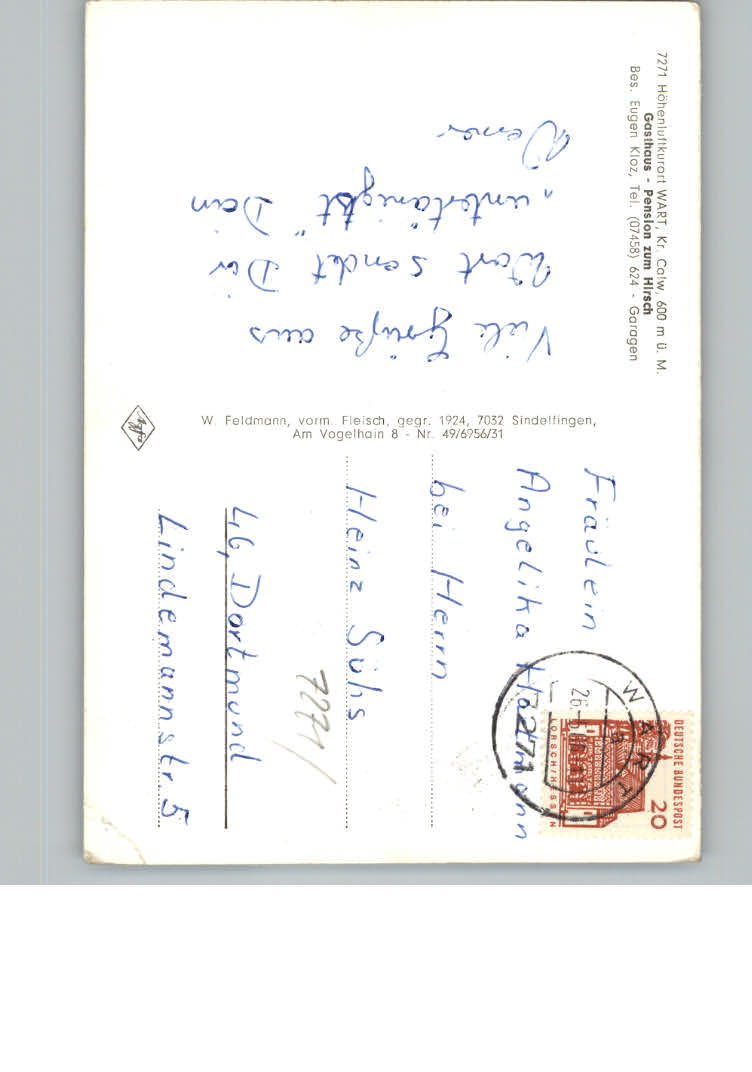 7271 Höhenluftkurort WART, Kr. Calw, 600 m ü. M.
Gasthaus - Pension zum Hirsch
Bes. Eugen Kloz, Tel. (07458) 624 - Garagen
Viele Grüße aus
Wart sendet Dir
„untertänigst" Dein
Werner
W. Feldmann, vorm. Fleisch, gegr. 1924, 7032 Sindelfingen,
Am Vogelhain 8 - Nr. 49/6956/31
Agfa
DEUTSCHE BUNDESPOST
20
LORSCH/HESSEN
WART
a
7271
Fräulein
Angelika
bei Herrn
Heinz Sühs
46, Dortmund
Lindemannstr. 5
7271/